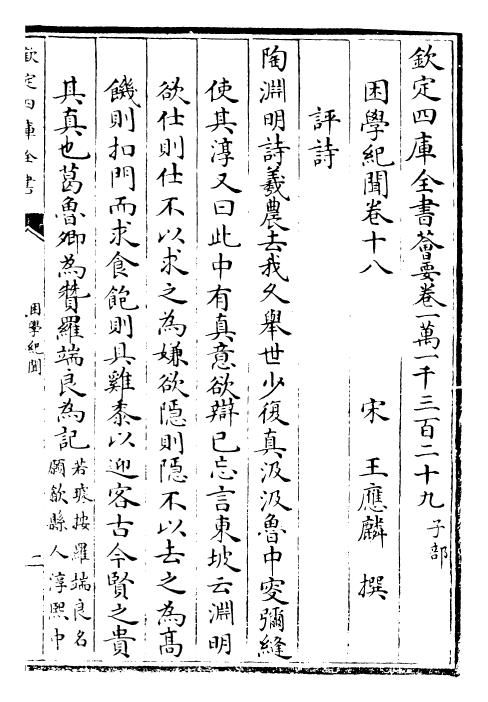 欽定四庫全書薈要卷一萬一千三百二十九 子部
困學紀聞卷十八
宋 王應麟 撰
評詩
陶淵明詩羲農去我久舉世少復真汲汲魯中叟彌縫
使其淳又曰此中有真意欲辯已忘言東坡云淵明
欲仕則仕不以求之為嫌欲隠則隠不以去之為髙
饑則扣門而求食飽則具雞黍以迎客古今賢之貴
其真也葛魯卿為贊羅端良為記
若璩按羅端良名
願歙縣人淳熙中
欽定四庫全書
困學紀聞